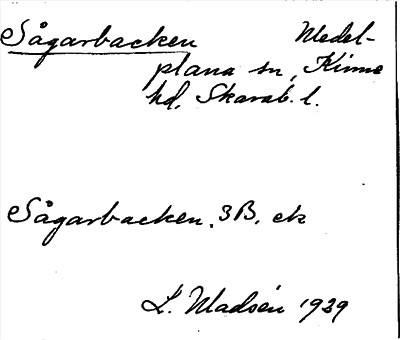 Sågarbacken Medel-
plana sn, Kinne
hd, Skarab. l.
Sågarbacken. 3B. ek
L. Madsén 1929